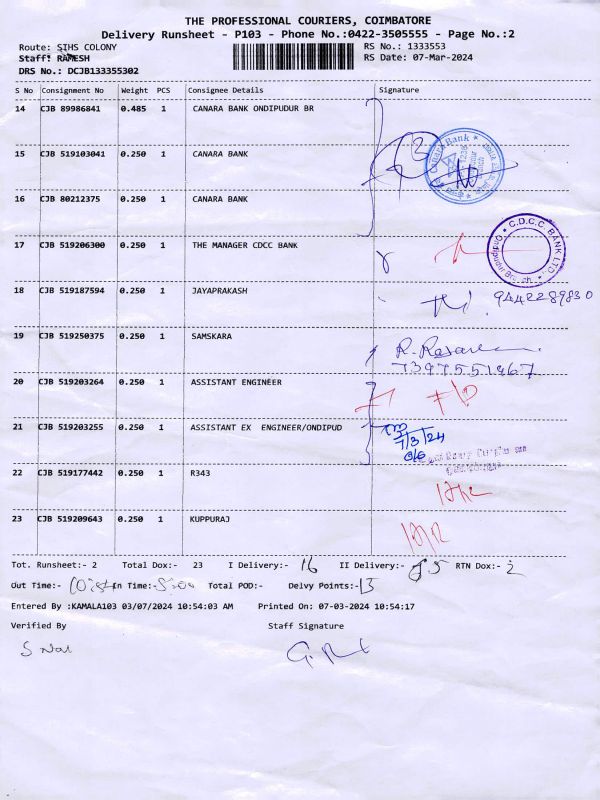 THE PROFESSIONAL COURIERS, COIMBATORE
Delivery Runsheet - P103 - Phone No.:0422-3505555 - Page No.:2
Route: SIHS COLONY
RS No.: 1333553
Staff: RAMESH
RS Date: 07-Mar-2024
DRS No.: DCJB133355302
S No Consignment No Weight PCS Consignee Details Signature
14 CJB 89986841 0.485 1 CANARA BANK ONDIPUDUR BR
15 CJB 519103041 0.250 1 CANARA BANK
16 CJB 80212375 0.250 1 CANARA BANK
17 CJB 519206300 0.250 1 THE MANAGER CDCC BANK
C.D.C.C. BANK LTD
18 CJB 519187594 0.250 1 JAYAPRAKASH
9442289830
19 CJB 519250375 0.250 1 SAMSKARA
7397551467
20 CJB 519203264 0.250 1 ASSISTANT ENGINEER
21 CJB 519203255 0.250 1 ASSISTANT EX ENGINEER/ONDIPUD
7/3/24
22 CJB 519177442 0.250 1 R343
23 CJB 519209643 0.250 1 KUPPURAJ
Tot. Runsheet:- 2 Total Dox:- 23 I Delivery:- 16 II Delivery:- 5 RTN Dox:- 2
Out Time:- In Time:- 5:00 Total POD:- Delvy Points:- 13
Entered By :KAMALA103 03/07/2024 10:54:03 AM Printed On: 07-03-2024 10:54:17
Verified By Staff Signature